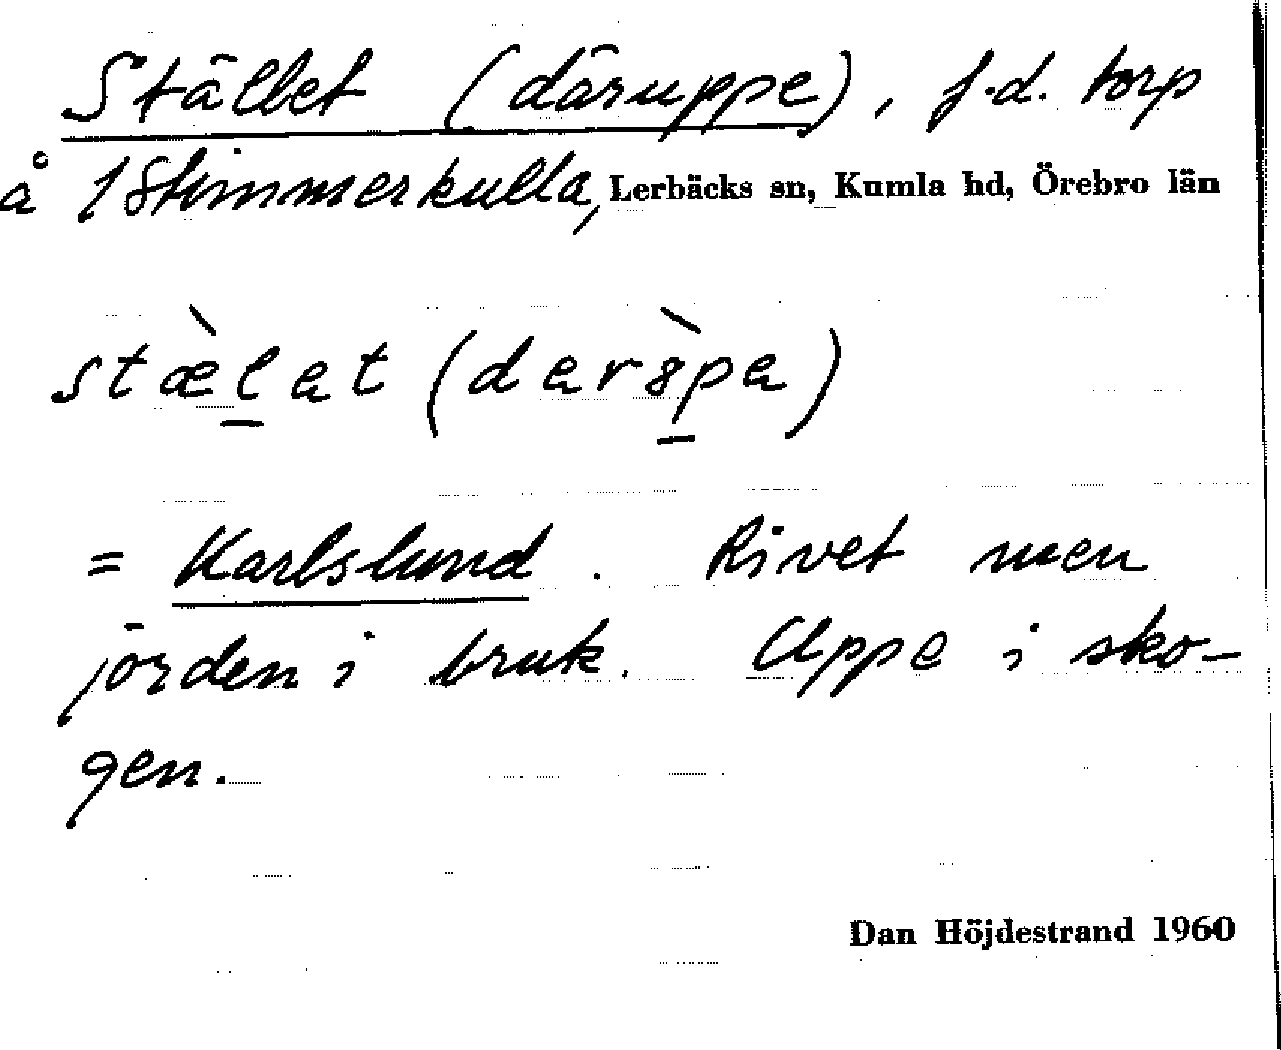 Stället (däruppe), f.d. torp
å 1 Stimmerkulla, Lerbäcks sn, Kumla hd, Örebro län
stæ̀lat (darɞ̀pa)
= Karlslund. Rivet men
jorden i bruk. Uppe i sko-
gen.
Dan Höjdestrand 1960